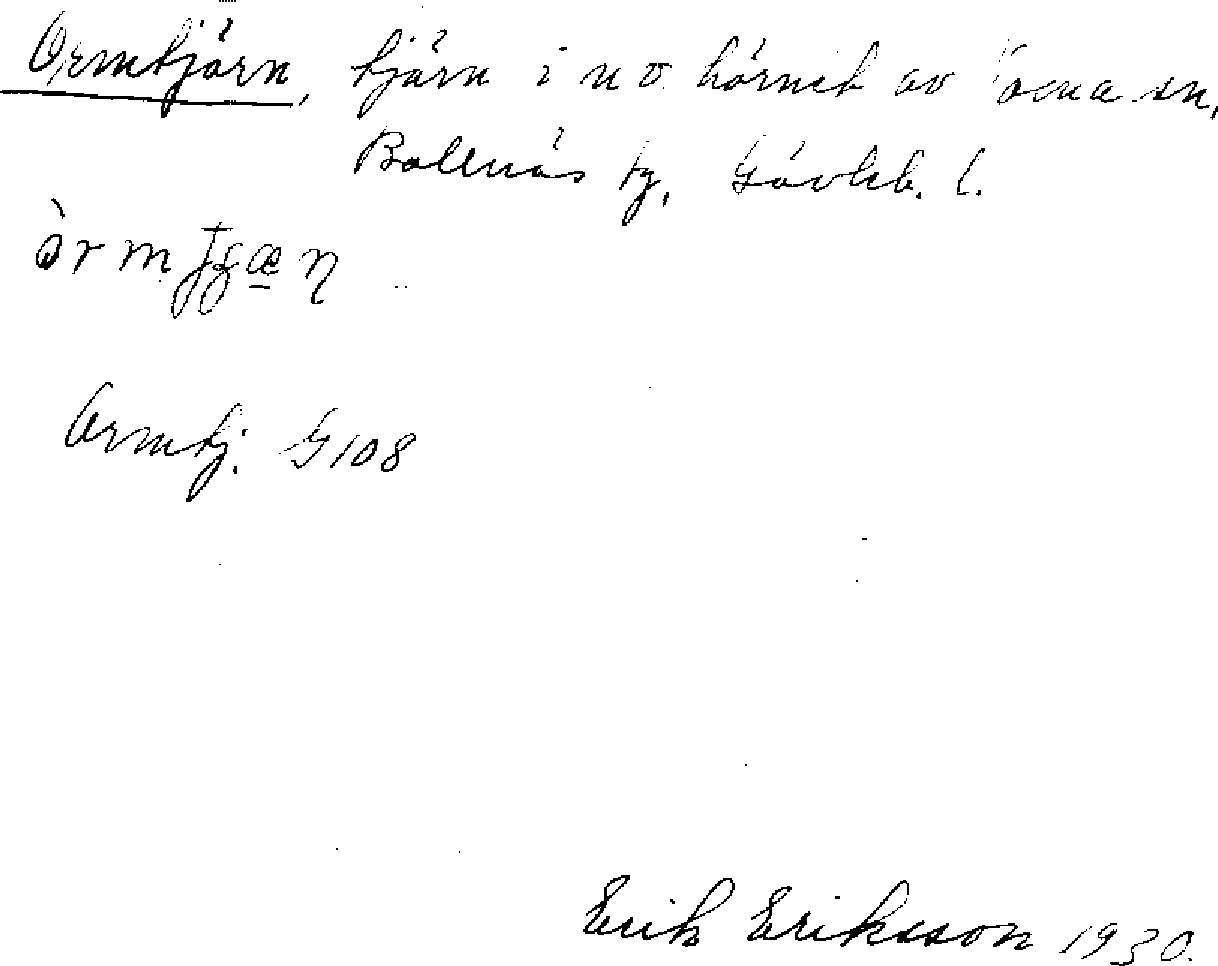 Ormtjärn, tjärn i n o. hörnet av Voxna sn,
Bollnäs tg, Gävleb. l.
Ormtj. G108
Erik Eriksson 1930.